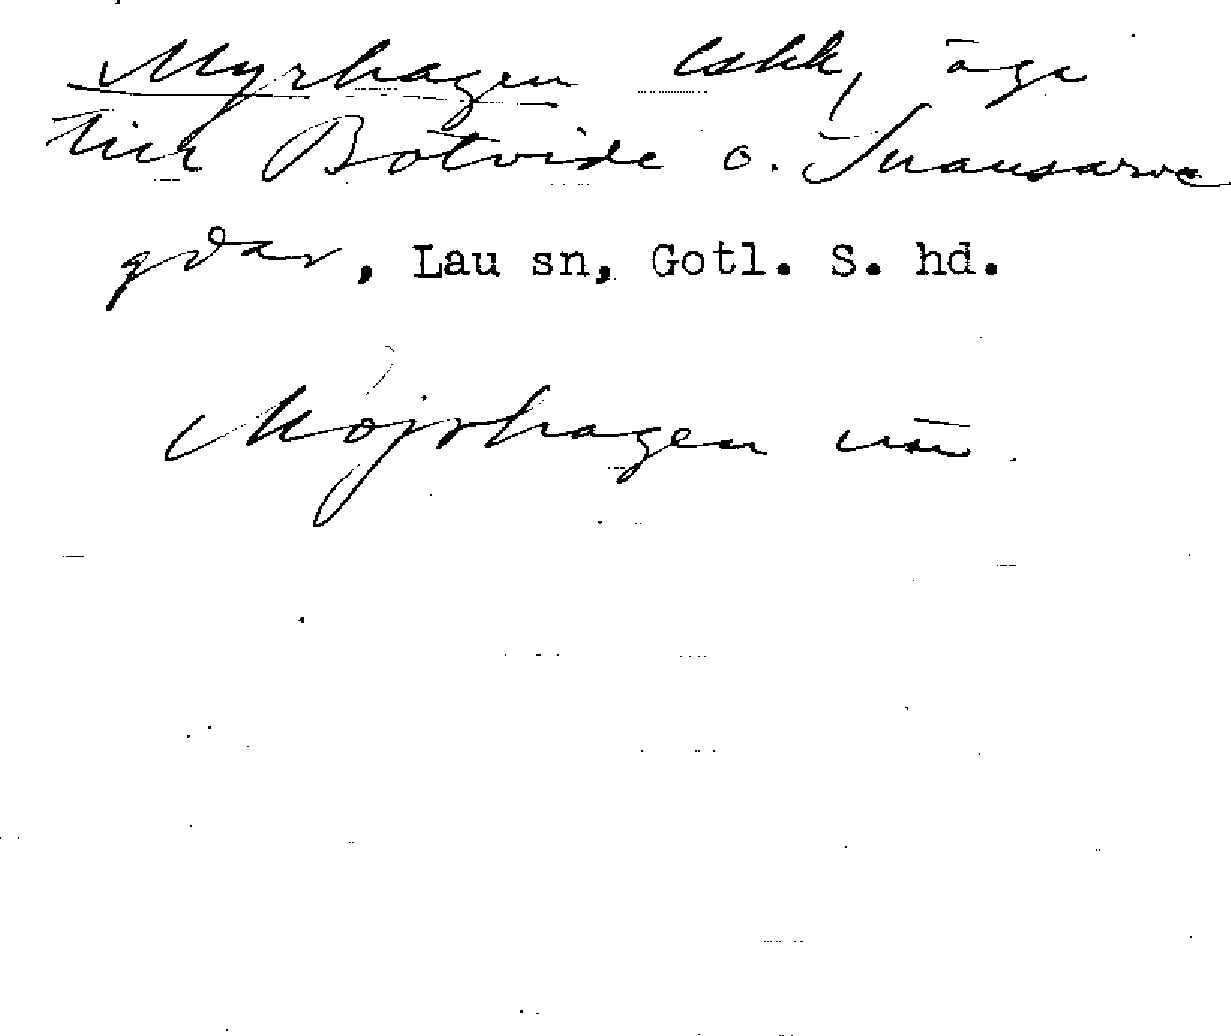 Myrhagen lshk, äga
till Botvide o. Snausarve
gdar, Lau sn, Gotl. S. hd.
Mojrhagen